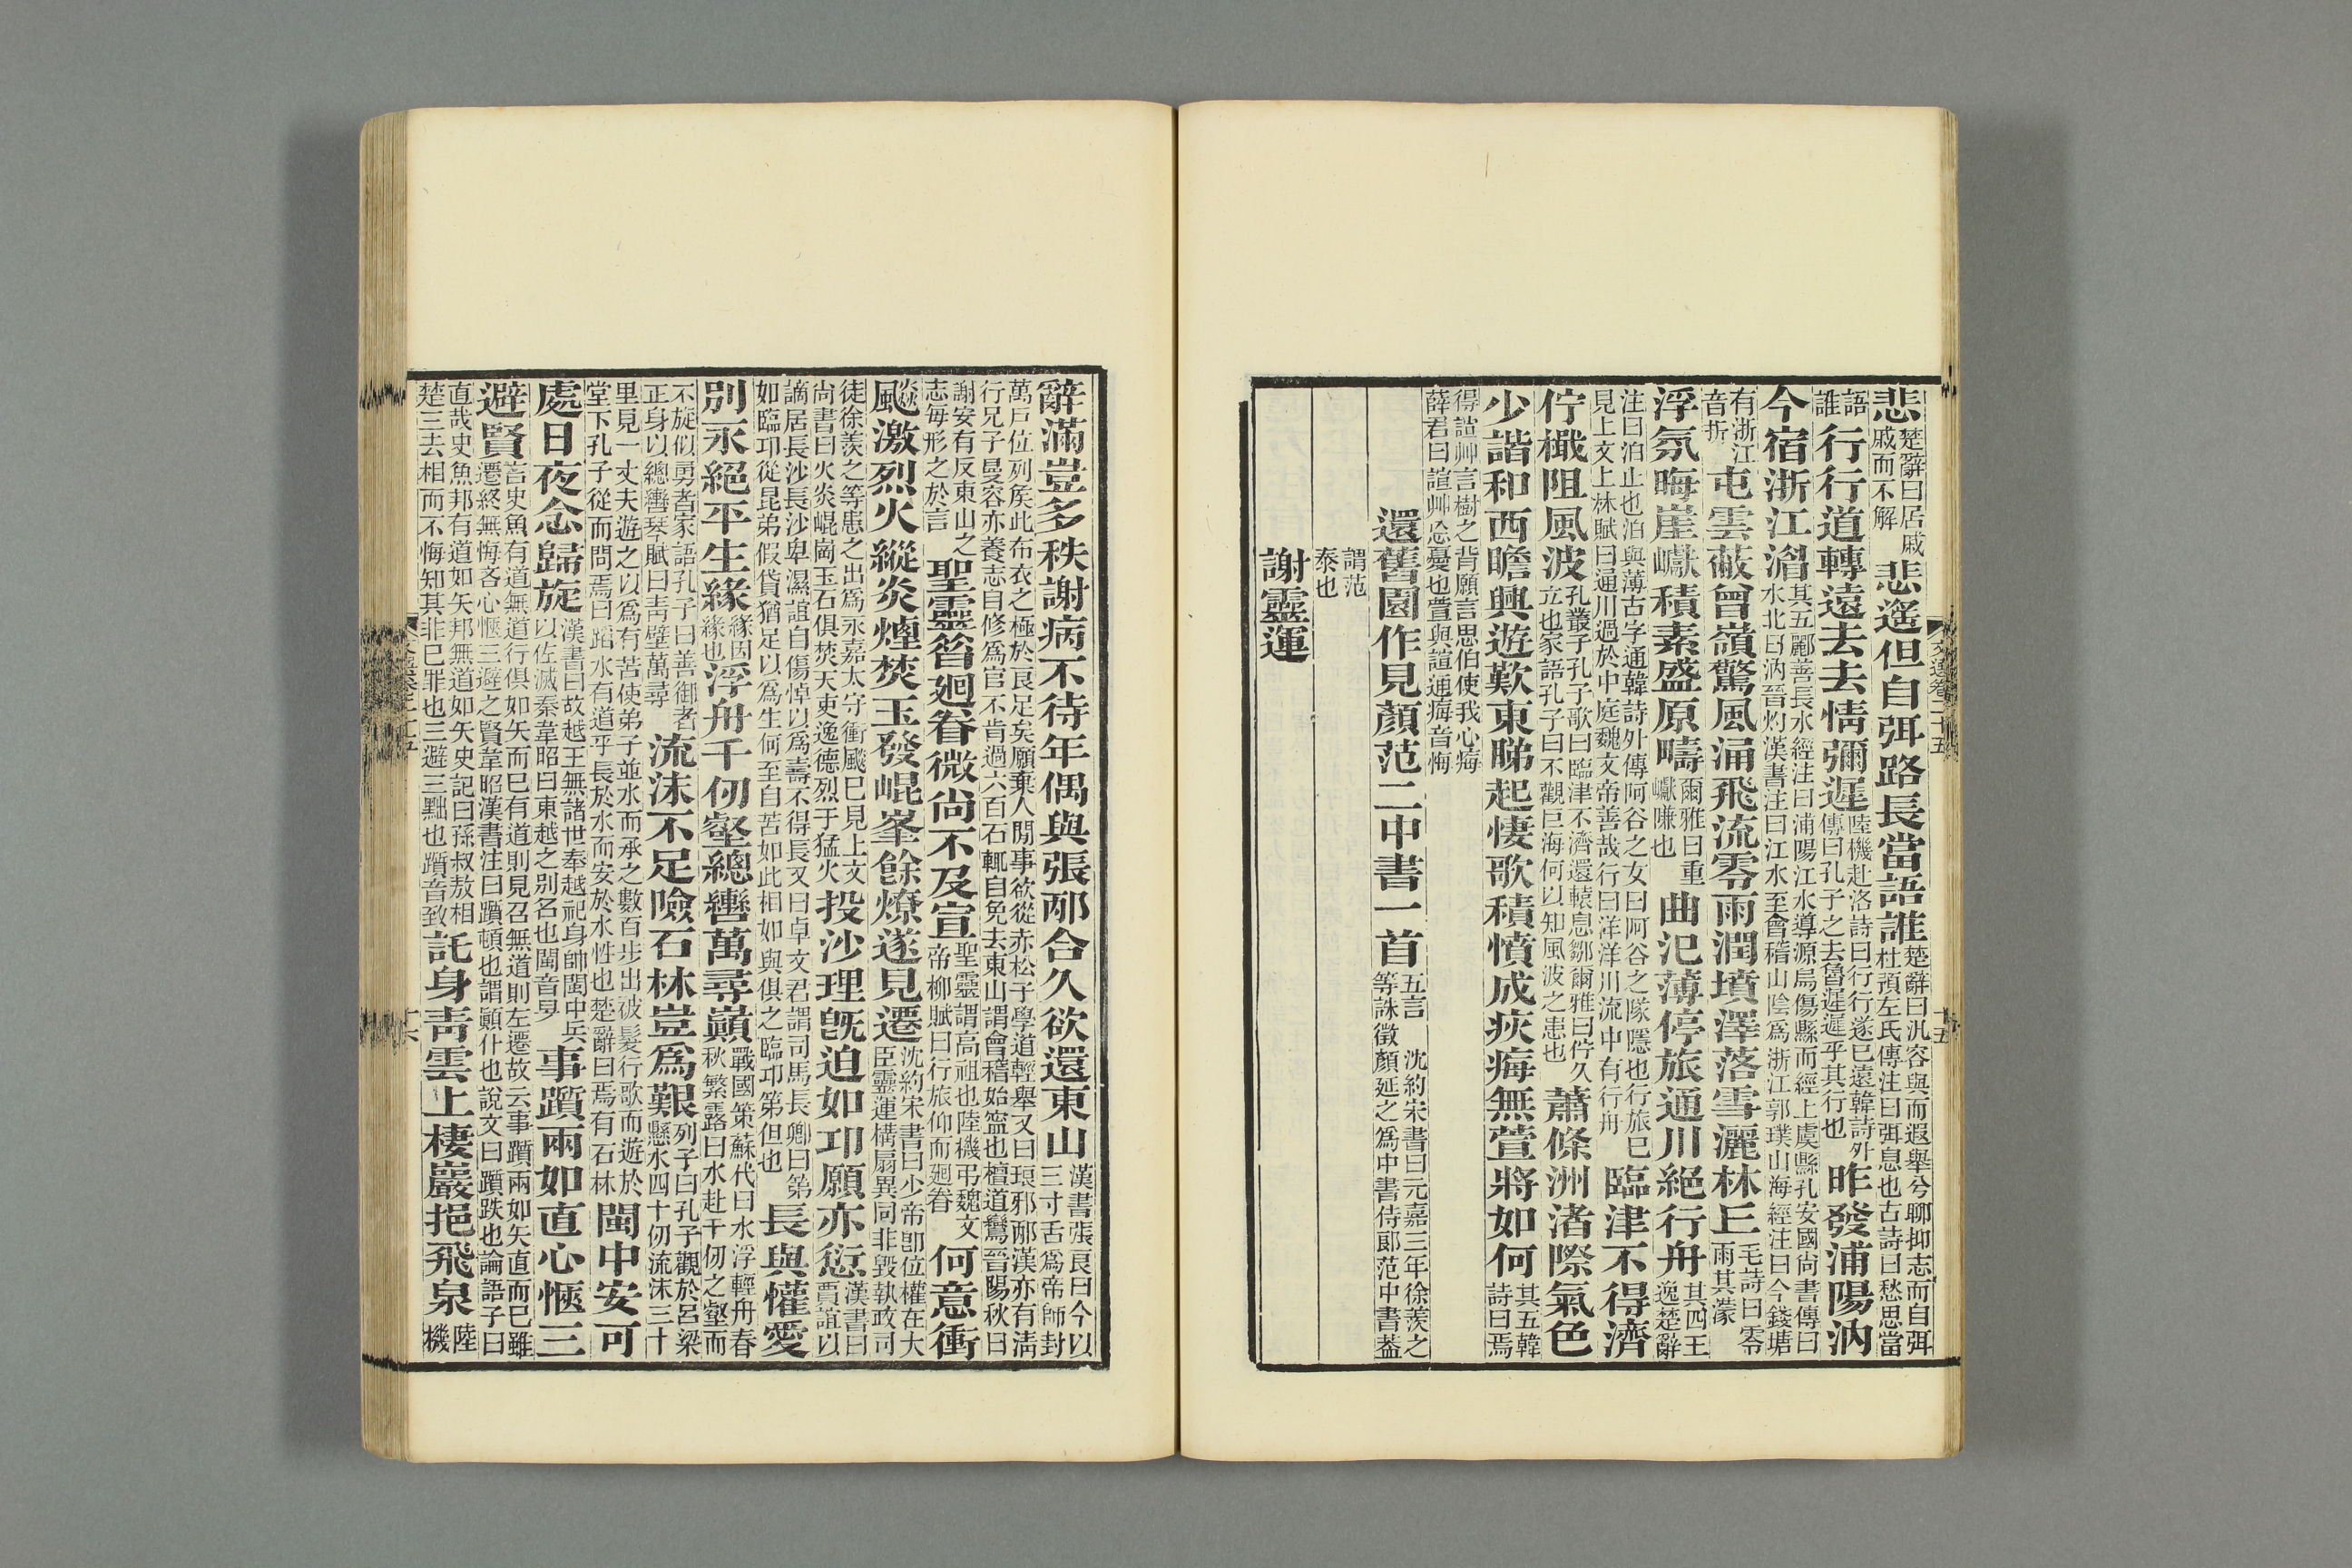 悲楚辭曰居戚戚而不解悲遙但自弭路長當語誰楚辭曰汎容與而遐舉兮聊抑志而自弭杜預左氏傳注曰弭息也古詩曰愁思當
語誰行行道轉遠去去情彌遲陸機赴洛詩曰行行遂已遠韓詩外傳曰孔子之去魯遲遲乎其行也昨發浦陽汭
今宿浙江湄其五酈善長水經注曰浦陽江水導源烏傷縣而經上虞縣孔安國尚書傳曰水北曰汭晉灼漢書注曰江水至會稽山陰爲浙江郭璞山海經注曰今錢塘
有浙江音折屯雲蔽曾嶺驚風涌飛流零雨潤墳澤落雪灑林丘毛詩曰零雨其濛
浮氛晦崖巘積素盛原疇爾雅曰重巘隒也曲汜薄停旅通川絕行舟其四王逸楚辭
注曰泊止也泊與薄古字通韓詩外傳阿谷之女曰阿谷之隊隱也行旅已見上文上林賦曰通川過於中庭魏文帝善哉行曰洋洋川流中有行舟臨津不得濟
佇檝阻風波孔叢子孔子歌曰臨津不濟還轅息鄹爾雅曰佇久立也家語孔子曰不觀巨海何以知風波之患也蕭條洲渚際氣色
少諧和西瞻興遊歎東睇起悽歌積憤成疢痗無萱將如何其五韓詩曰焉
得諠艸言樹之背願言思伯使我心痗薛君曰諠艸忘憂也萱與諠通痗音悔
還舊園作見顏范二中書一首五言　沈約宋書曰元嘉三年徐羨之等誅徵顏延之爲中書侍郎范中書蓋
謂范泰也
謝靈運
文選卷二十五　十五
辭滿豈多秩謝病不待年偶與張邴合久欲還東山漢書張良曰今以三寸舌爲帝師封
萬戶位列矦此布衣之極於良足矣願棄人閒事欲從赤松子學道輕舉又曰琅邪邴漢亦有淸行兄子曼容亦養志自修爲官不肯過六百石輒自免去東山謂會稽始寧也檀道鸞晉陽秋曰
謝安有反東山之志每形之於言聖靈昔廻眷微尚不及宣聖靈謂高祖也陸機弔魏文帝柳賦曰行旅仰而廻眷何意衝
飈激烈火縱炎煙焚玉發崐峯餘燎遂見遷沈約宋書曰少帝卽位權在大臣靈運構扇異同非毀執政司
徒徐羨之等患之出爲永嘉太守衝飈巳見上文尚書曰火炎崐崗玉石俱焚天吏逸德烈于猛火投沙理旣迫如卭願亦愆漢書曰賈誼以
謫居長沙長沙卑濕誼自傷悼以爲壽不得長又曰卓文君謂司馬長卿曰第如臨卭從昆弟假貸猶足以爲生何至自苦如此相如與俱之臨卭第但也長與懽愛
別永絕平生緣緣因緣也浮舟千仞壑總轡萬尋巔戰國策蘇代曰水浮輕舟春秋繁露曰水赴千仞之壑而
不旋似勇者家語孔子曰善御者正身以總轡琴賦曰靑壁萬尋流沫不足險石林豈爲艱列子曰孔子觀於呂梁懸水四十仞流沫三十
里見一丈夫遊之以爲有苦使弟子並水而承之數百步出被髮行歌而遊於堂下孔子從而問焉曰蹈水有道乎長於水而安於水性也楚辭曰焉有石林閩中安可
處日夜念歸旋漢書曰故越王無諸世奉越祀身帥閩中兵以佐滅秦韋昭曰東越之別名也閩音旻事躓兩如直心愜三
避賢言史魚有道無道行俱如矢而已有道則見召無道則左遷故云事躓兩如矢直而已雖遷終無悔吝心愜三避之賢韋昭漢書注曰躓頓也謂顚什也說文曰躓跌也論語子曰
直哉史魚邦有道如矢邦無道如矢史記曰孫叔敖相楚三去相而不悔知其非巳罪也三避三黜也躓音致託身靑雲上棲巖挹飛泉陸機